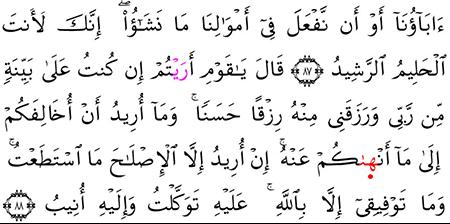 ءَابَآؤُنَآ أَوْ أَن نَّفْعَلَ فِىٓ أَمْوَٰلِنَا مَا نَشَـٰٓؤُا۟ ۖ إِنَّكَ لَأَنتَ
ٱلْحَلِيمُ ٱلرَّشِيدُ ٨٧ قَالَ يَـٰقَوْمِ أَرَيْتُمْ إِن كُنتُ عَلَىٰ بَيِّنَةٍ
مِّن رَّبِّى وَرَزَقَنِى مِنْهُ رِزْقًا حَسَنًا ۚ وَمَآ أُرِيدُ أَنْ أُخَالِفَكُمْ
إِلَىٰ مَآ أَنْهَىٰكُمْ عَنْهُ ۚ إِنْ أُرِيدُ إِلَّا ٱلْإِصْلَـٰحَ مَا ٱسْتَطَعْتُ ۚ
وَمَا تَوْفِيقِىٓ إِلَّا بِٱللَّهِ ۚ عَلَيْهِ تَوَكَّلْتُ وَإِلَيْهِ أُنِيبُ ٨٨